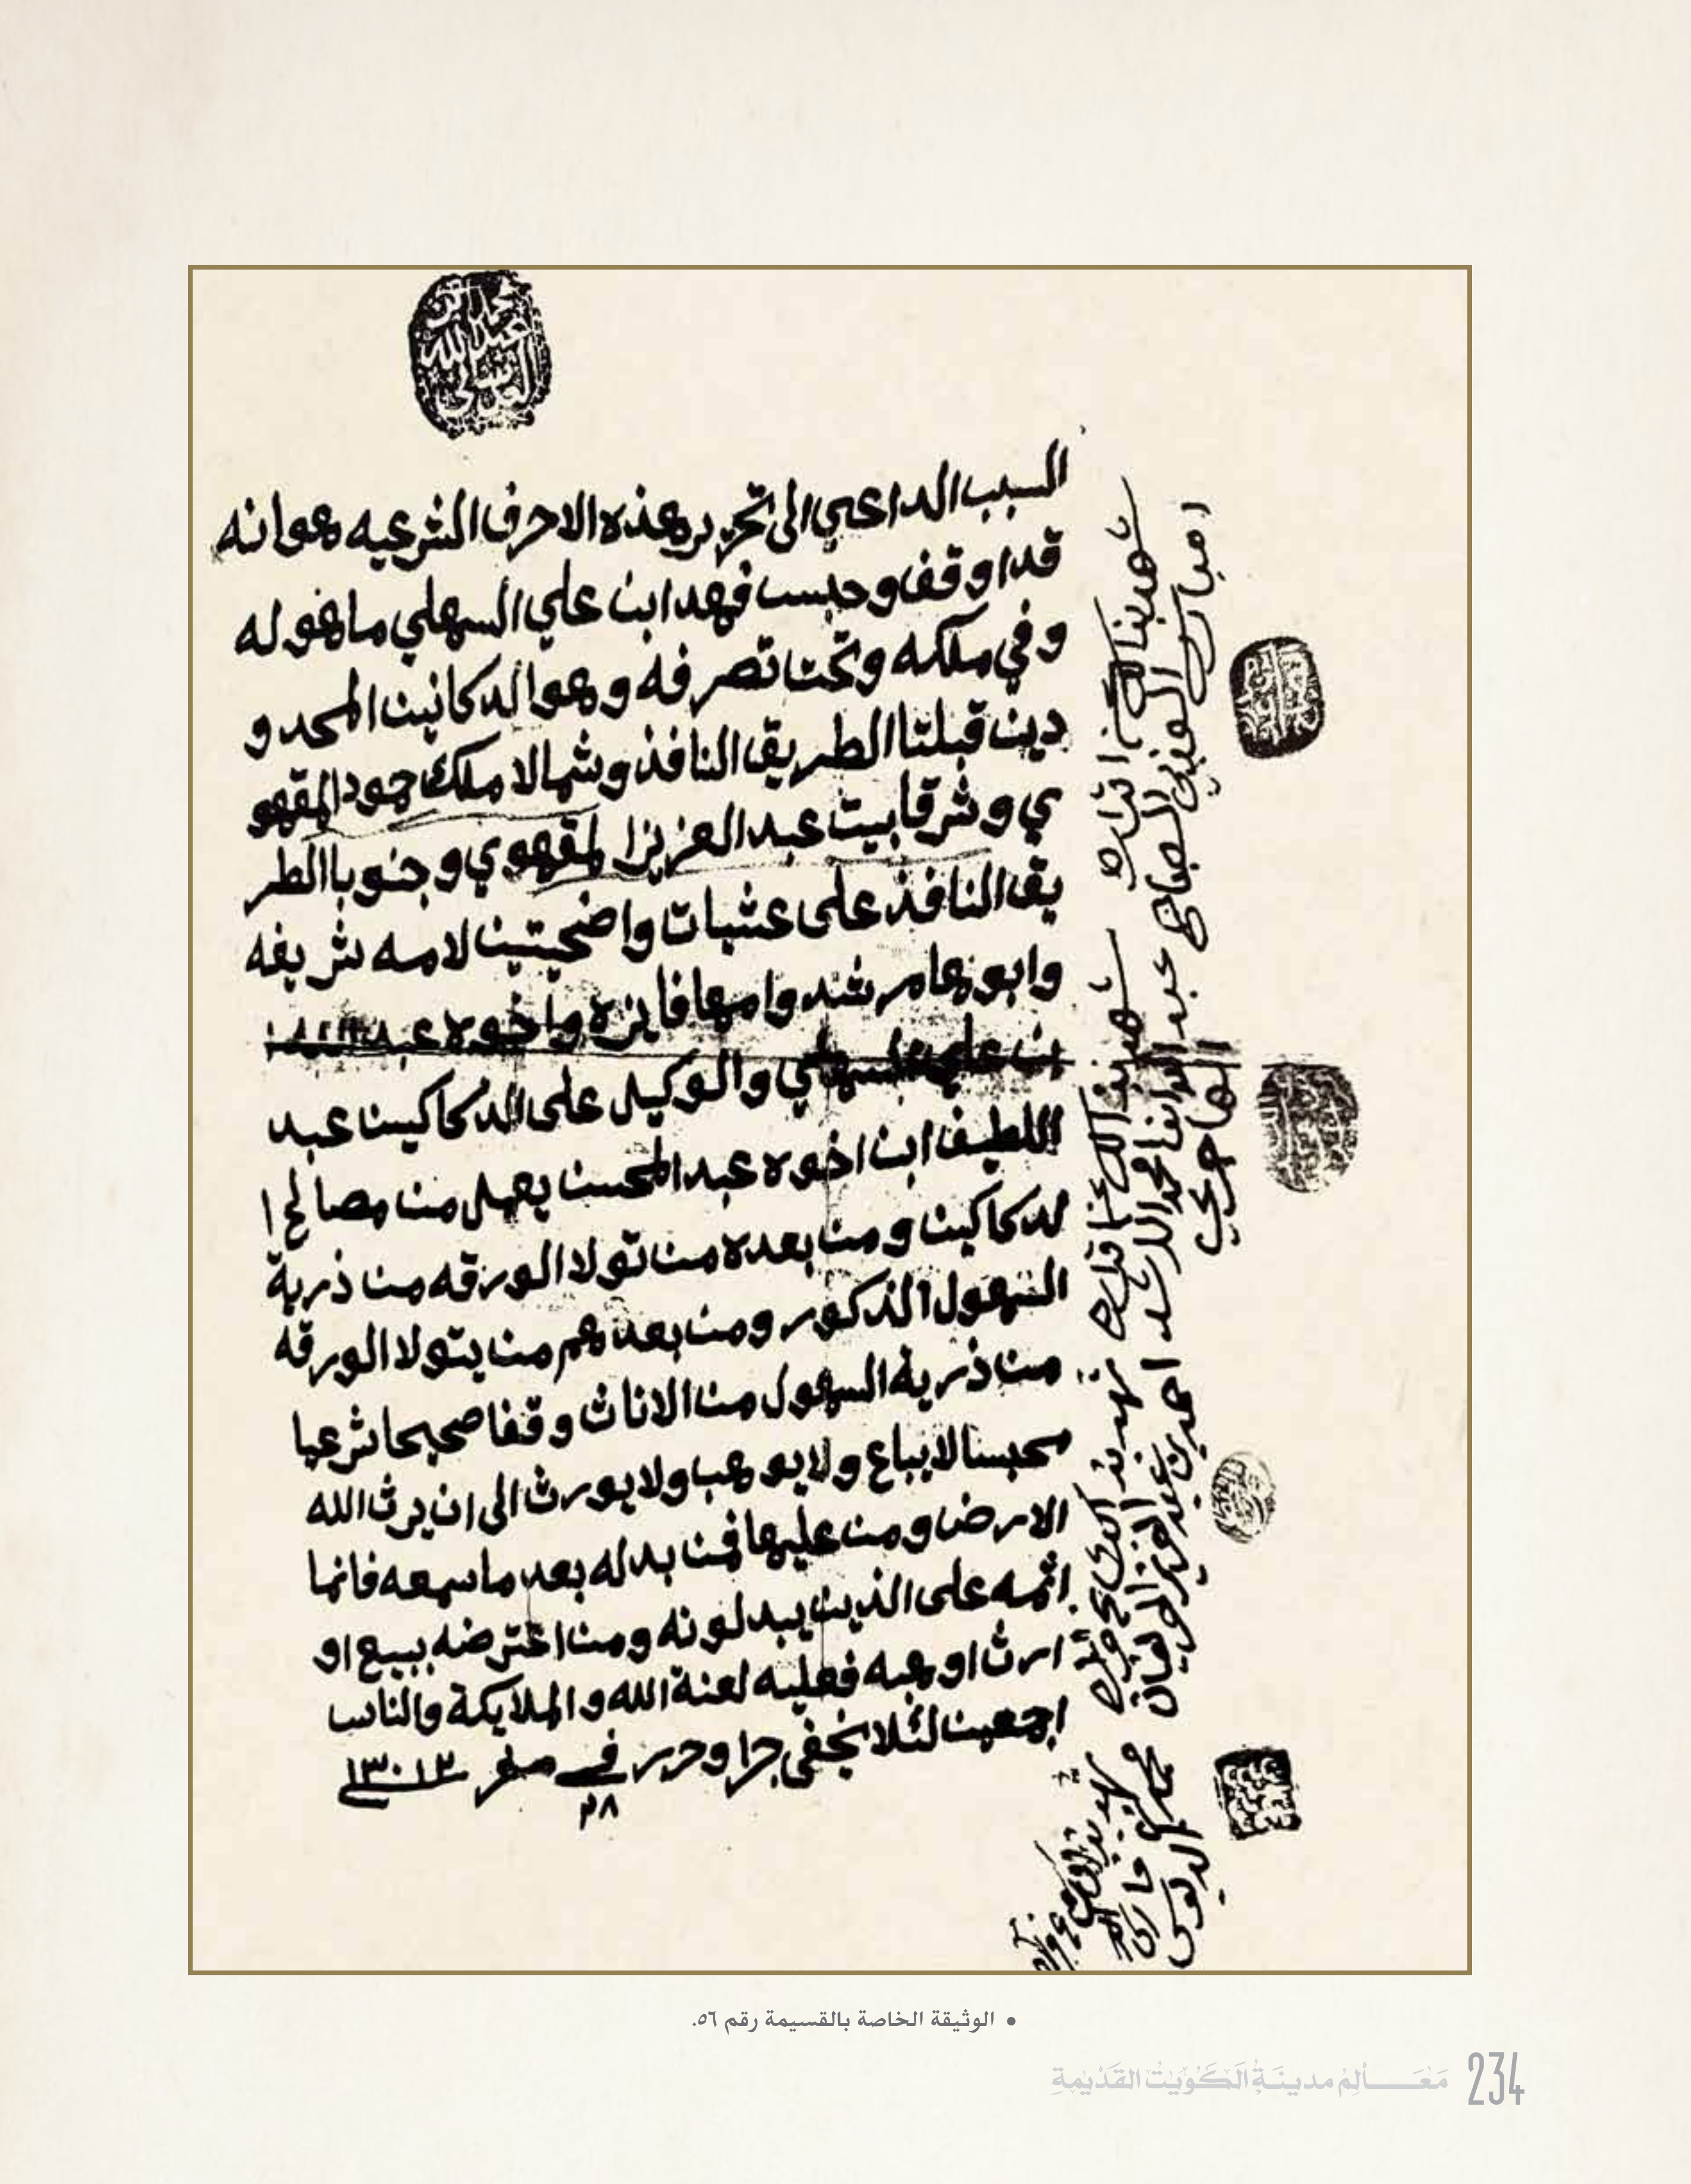 محمد ابن
عبد الله
العدساني
السبب الداعي الى تحرير هذه الاحرف الشرعيه هوانه
قد اوقف وحبس فهد ابن علي السهلي ماهو له
وفي ملكه وتحت تصرفه وهوا لدكانين المحدو
دين قبلتا الطريق النافذ وشمالا ملك حمود المقهو
ي وشرقا بيت عبد العزيز المقهوي وجنوبا الطر
يق النافذ على عشيات واضحيتين لامه شريفه
وابوها مرشد وامها فايزه واخوه عبد
بن علي السهلي والوكيل على الدكاكين عبد
اللطيف ابن اخوه عبد المحسن يعمل من مصالح ا
لدكاكين ومن بعده من تولا الورقه من ذرية
السهول الذكور ومن بعدهم من يتولا الورقه
من ذرية السهول من الاناث وقفا صحيحا شرعيا
محبسا لايباع ولايوهب ولايورث الى ان يرث الله
الارض ومن عليها فمن بدله بعد ماسمعه فانما
اثمه على الذين يبدلونه ومن اعترضه ببيع او
ارث اوهبه فعليه لعنة الله والملايكة والناس
اجمعين لئلا يخفى جرا وحرر في صفر ١٣٠١٣
٢٨
شهد بذالك
امبارك
شهد بذالك
عبد
محمد الرشد
شهد بذالك
احمد بن عبد العزيز
شهد بذالك
محمد
• الوثيقة الخاصة بالقسيمة رقم ٥٦.
مَعَـــالِمُ مدينَةِ الكُوَيْتِ القَدْيمَةِ 234